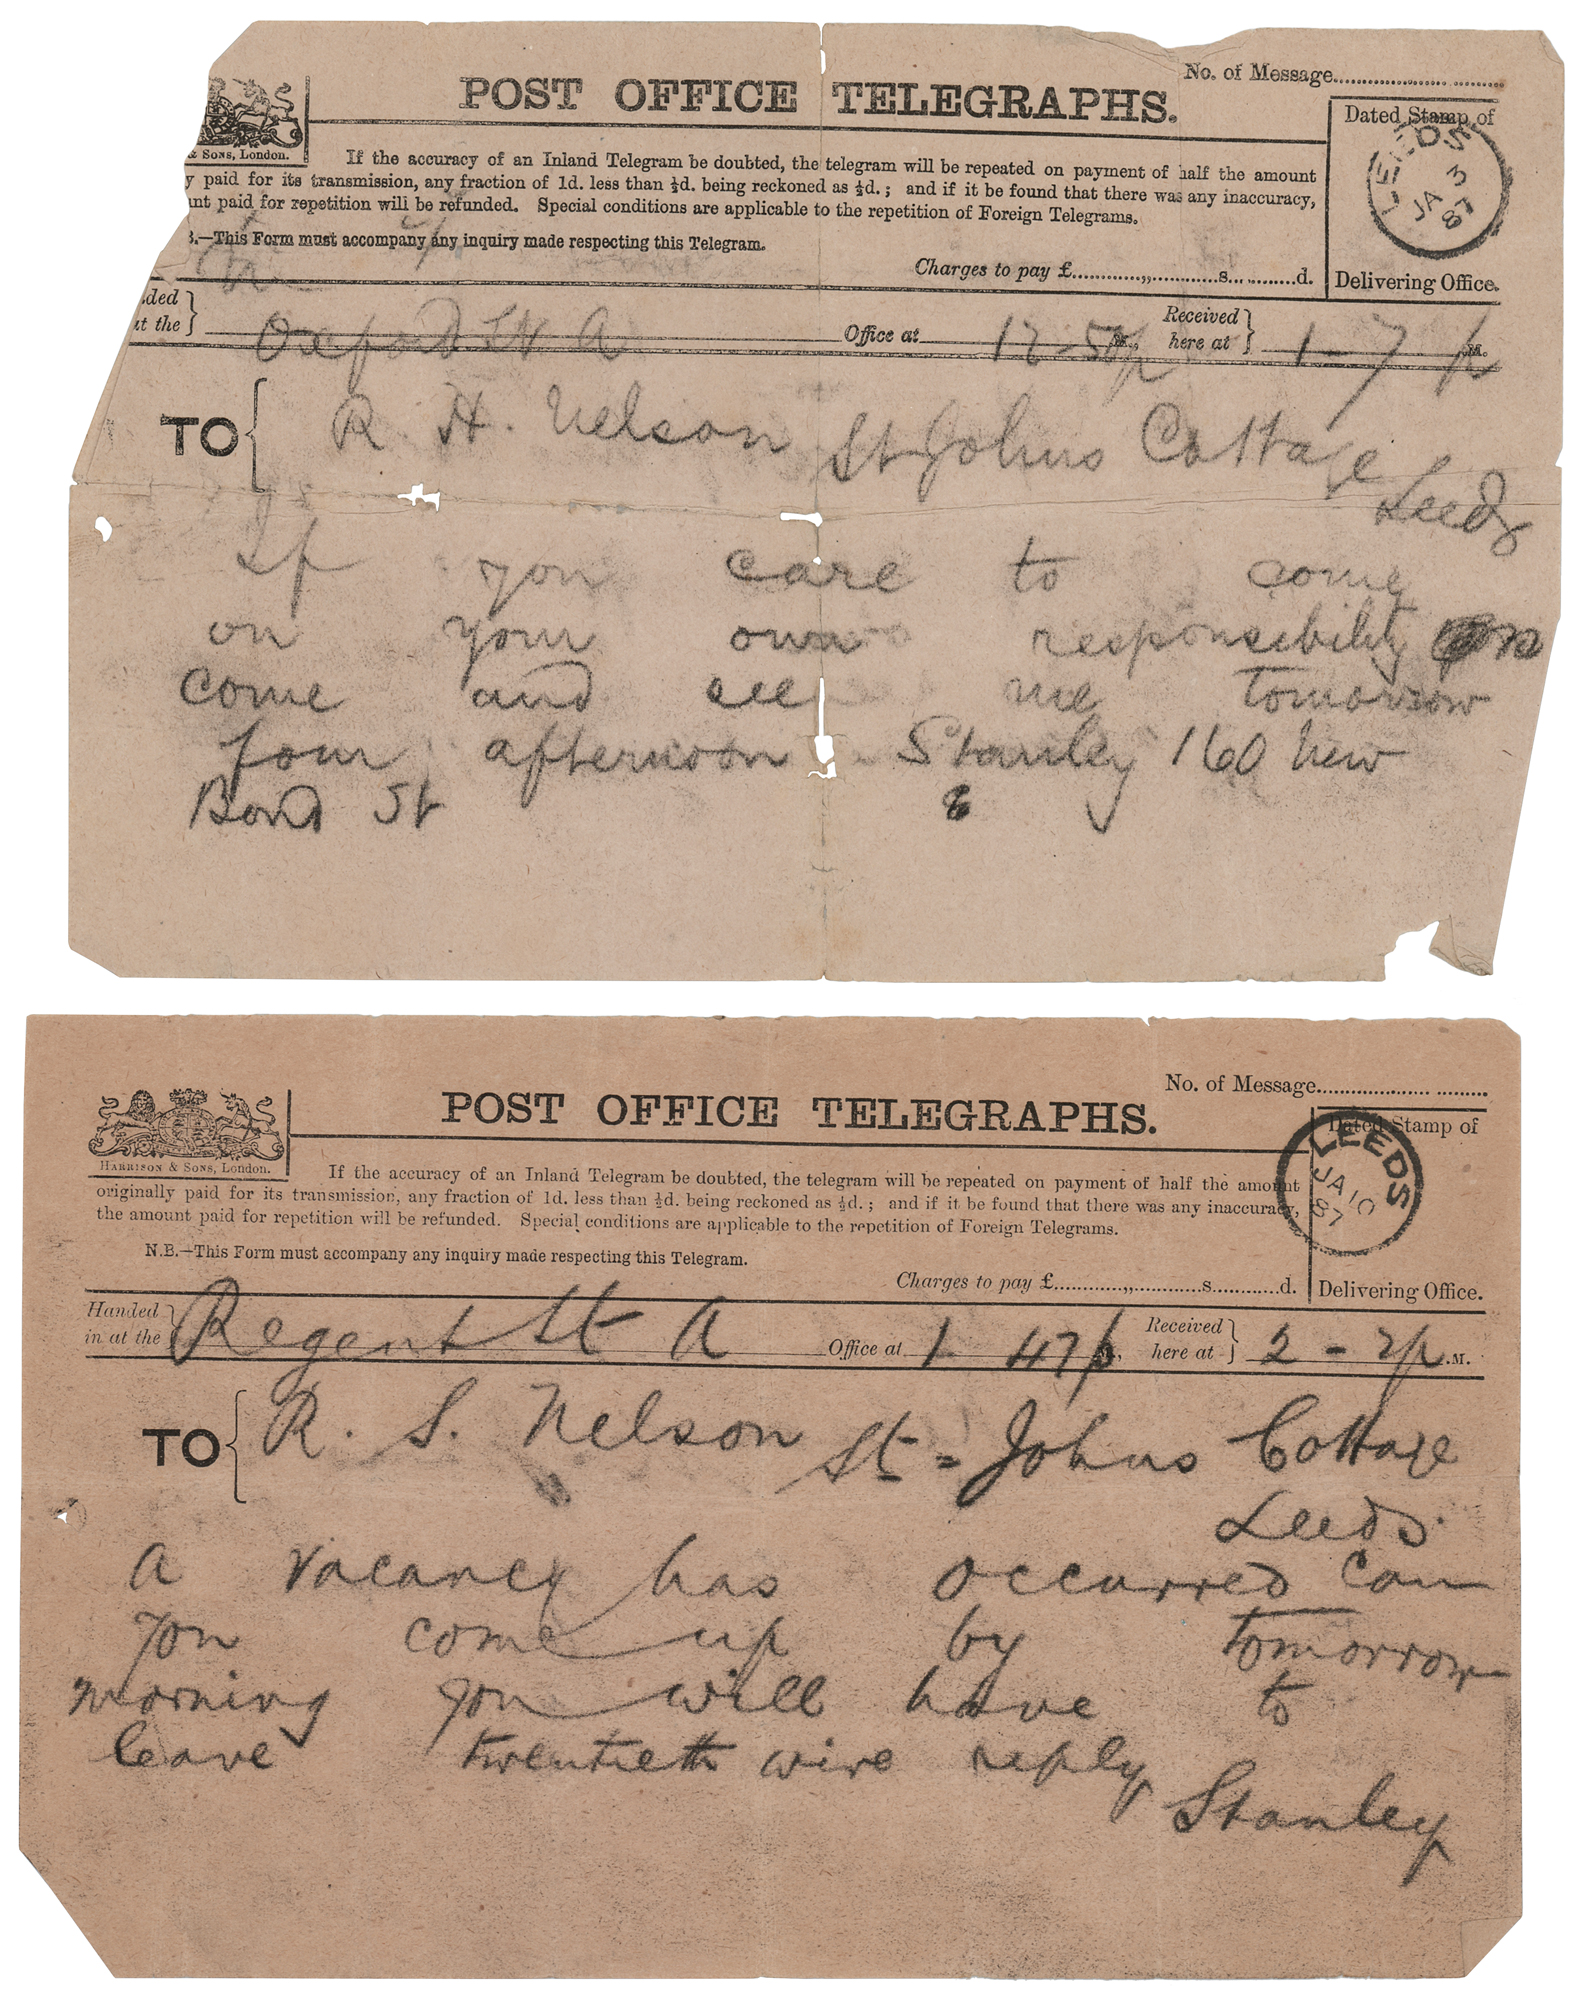 No. of Message
POST OFFICE TELEGRAPHS.
Dated Stamp of
LEEDS
JA 3
87
& Sons, London.
If the accuracy of an Inland Telegram be doubted, the telegram will be repeated on payment of half the amount
y paid for its transmission, any fraction of 1d. less than ½d. being reckoned as ½d.; and if it be found that there was any inaccuracy,
unt paid for repetition will be refunded. Special conditions are applicable to the repetition of Foreign Telegrams.
B.—This Form must accompany any inquiry made respecting this Telegram.
Charges to pay £ „ s. d.
Delivering Office.
ded at the } Oxford St A Office at 12-50p M., Received here at } 1-7 p M.
TO { R. H. Nelson St Johns Cottage
Leeds
If you care to come
on your own responsibility
come and see me tomorrow
four afternoon Stanley 160 New
Bond St
No. of Message
POST OFFICE TELEGRAPHS.
Dated Stamp of
LEEDS
JA 10
87
HARRISON & SONS, London.
If the accuracy of an Inland Telegram be doubted, the telegram will be repeated on payment of half the amount
originally paid for its transmission, any fraction of 1d. less than ½d. being reckoned as ½d.; and if it be found that there was any inaccuracy,
the amount paid for repetition will be refunded. Special conditions are applicable to the repetition of Foreign Telegrams.
N.B.—This Form must accompany any inquiry made respecting this Telegram.
Charges to pay £ „ s. d.
Delivering Office.
Handed in at the } Regent St A Office at 1 47p M., Received here at } 2-2p .M.
TO { R. S. Nelson St = Johns Cottage
Leeds.
A vacancy has occurred can
you come up by tomorrow
morning you will have to
leave twentieth wire reply
Stanley